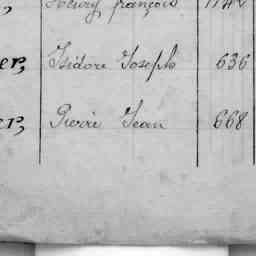 Henry françois 1142
er, Isidore Joseph 636
er, Pierre Jean 668